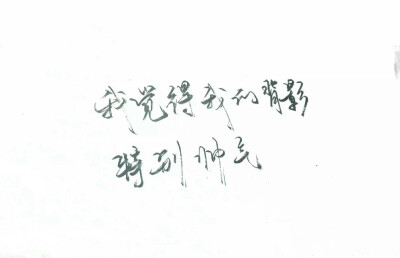 我觉得我的背影
特别帅气